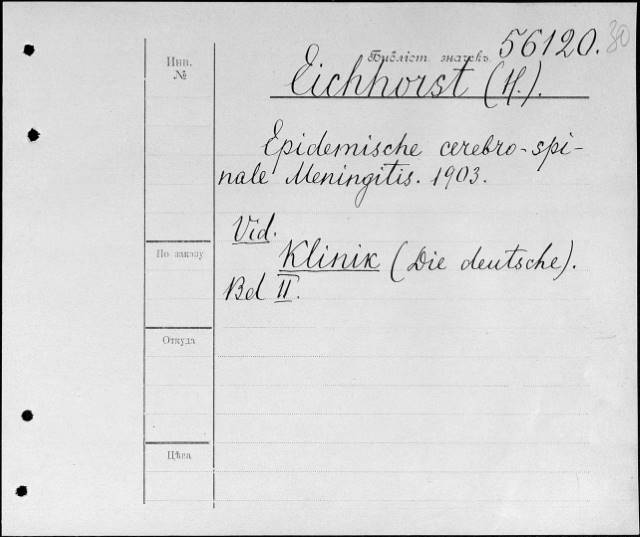 Библіст. значекъ 56120. 30
Инв.
№
Eichhorst (H.).
Epidemische cerebro-spi-
nale Meningitis. 1903.
Vid.
Klinik (Die deutsche).
Bd II.
По заказу
Откуда
Цѣна